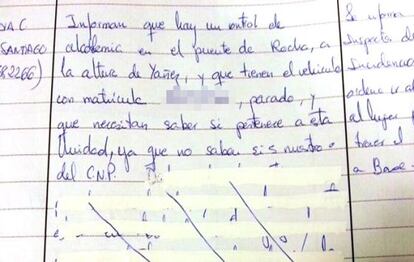 DAC
SANTIAGO
82266)
Informan que hay un control de
alcolemia en el puente de Rocha, a
la altura de Yañez, y que tienen el vehículo
con matrícula , parado, y
que necesitan saber si pertenece a esta
Unidad, ya que no saben si es nuestro o
del C.N.P.
Se informa
Inspector de
Incidencias
ordena ir al
al lugar
traer el
a Base